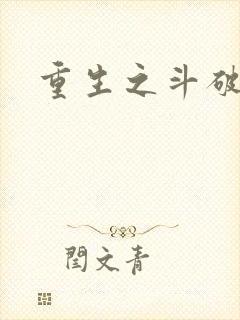 重生之斗破
閆文青